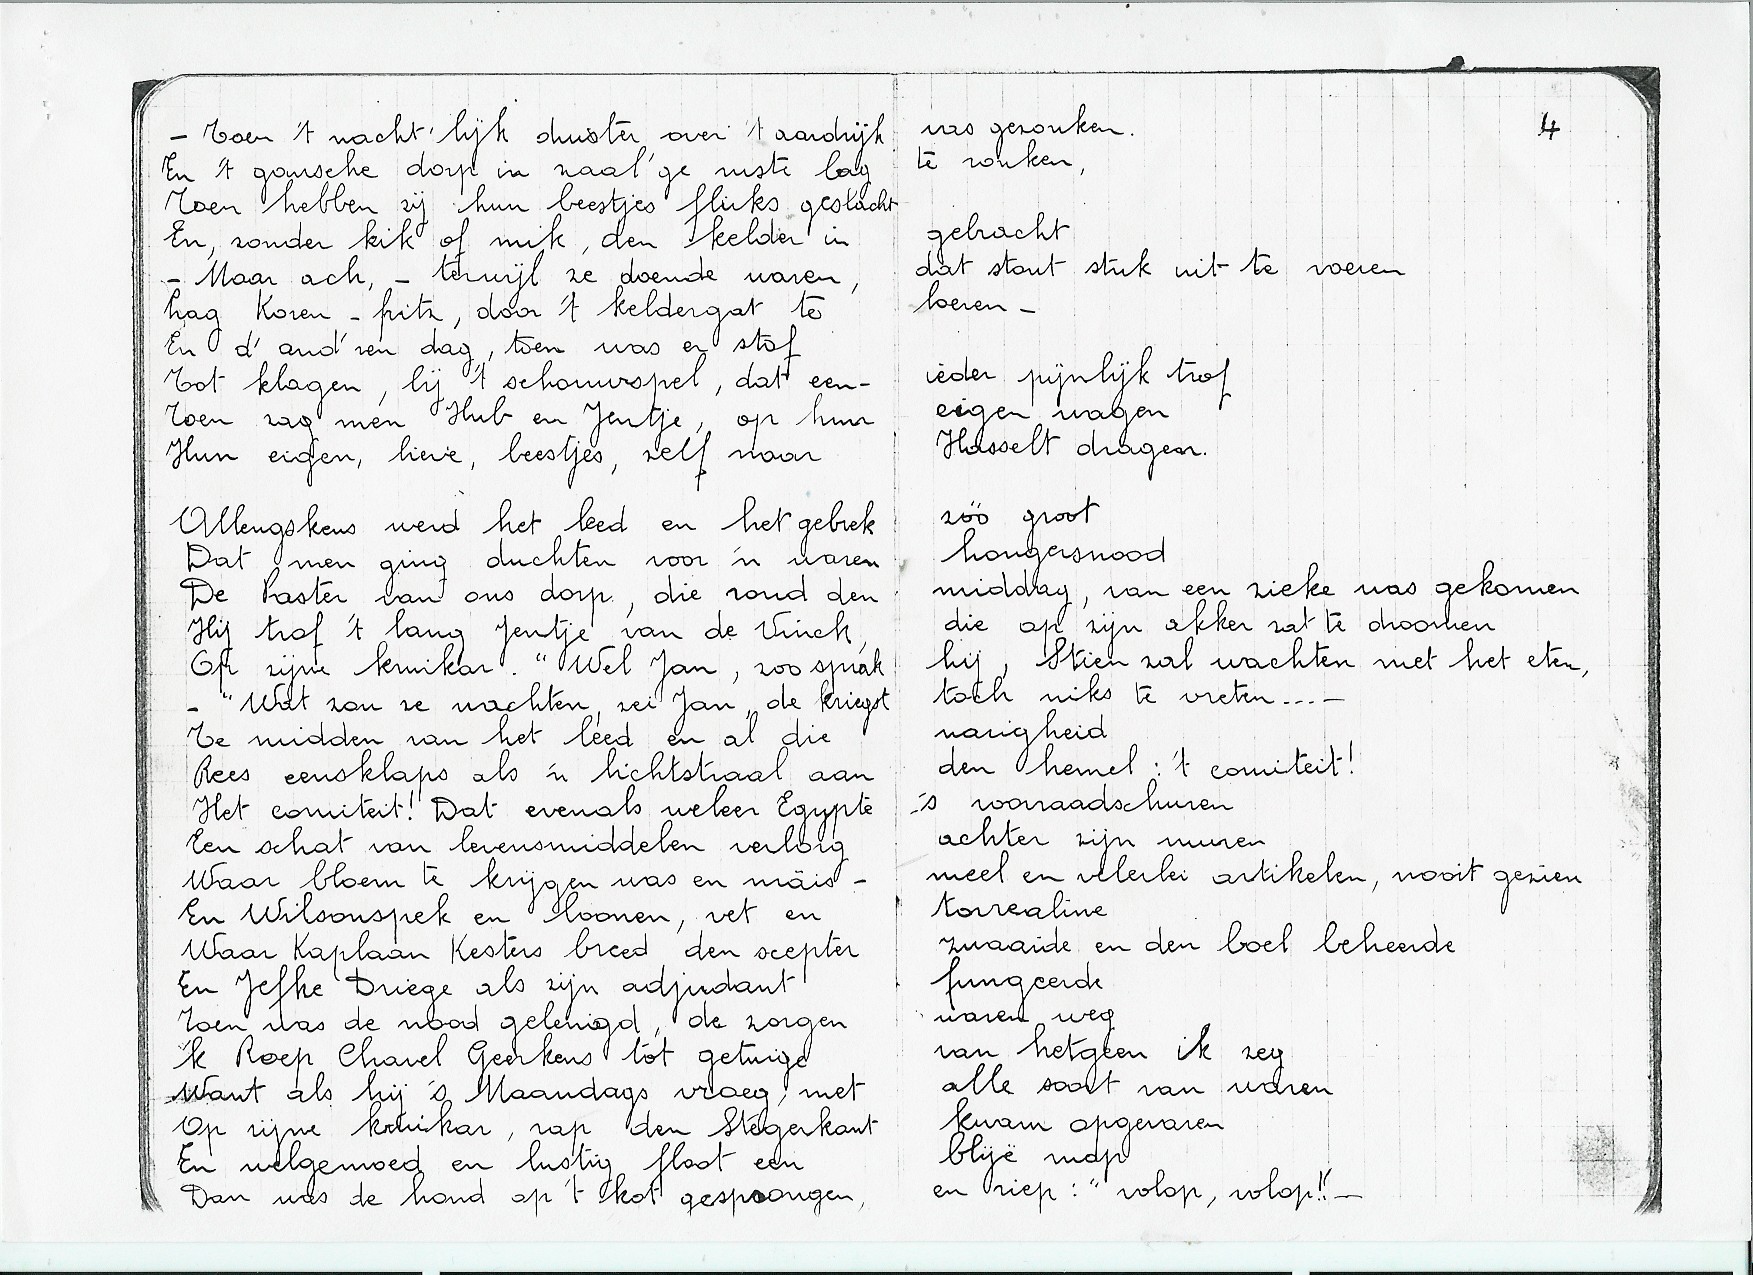 4
- Toen 't nacht'lijk duister over 't aardrijk was gezonken.
En 't gansche dorp in zaal'ge ruste lag te ronken,
Toen hebben zij hun beestjes fluks geslacht
En, zonder kik of mik, den kelder in gebracht
- Maar ach, - terwijl ze doende waren, dat stout stuk uit te voeren
Lag Koren - fritz, door 't keldergat te loeren -
En d' and'ren dag, toen was er stof
Tot klagen, bij 't schouwspel, dat een - ieder pijnlijk trof
Toen zag men Hub en Jentje, op hun eigen wagen
Hun eigen, lieve, beestjes, zelf naar Hasselt dragen.
Allengskens werd het leed en het gebrek zóó groot
Dat men ging duchten voor 'n waren hongersnood
De Paster van ons dorp, die rond den middag, van een zieke was gekomen
Hij trof 't lang Jentje van de Vinck, die op zijn akker zat te droomen
Op zijne kruikar. "Wel Jan, zoo sprak hij, Stien zal wachten met het eten,
- "Wat zou ze wachten, zei Jan, de kriegst toch niks te vreten....-
Te midden van het leed en al die narigheid
Rees eensklaps als 'n lichtstraal aan den hemel: 't comiteit!
Het comiteit! Dat evenals weleer Egypte 's voorraadschuren
Een schat van levensmiddelen verborg achter zijn muren
Waar bloem te krijgen was en maïs - meel en velerlei artikelen, nooit gezien
En Wilsonspek en boonen, vet en torrealine
Waar Kaplaan Kesters breed den scepter zwaaide en den boel beheerde
En Jefke Driege als zijn adjudant fungeerde
Toen was de nood gelenigd, de zorgen waren weg
'k Roep Charel Geerkens tot getuige van hetgeen ik zeg
Want als hij 's Maandags vroeg, met alle soort van waren
Op zijne kruikar, rap den Stegerkant kwam opgevaren
En welgemoed en lustig floot een blijë mop
Dan was de hond op 't kot gesprongen, en riep: "volop, volop!! -